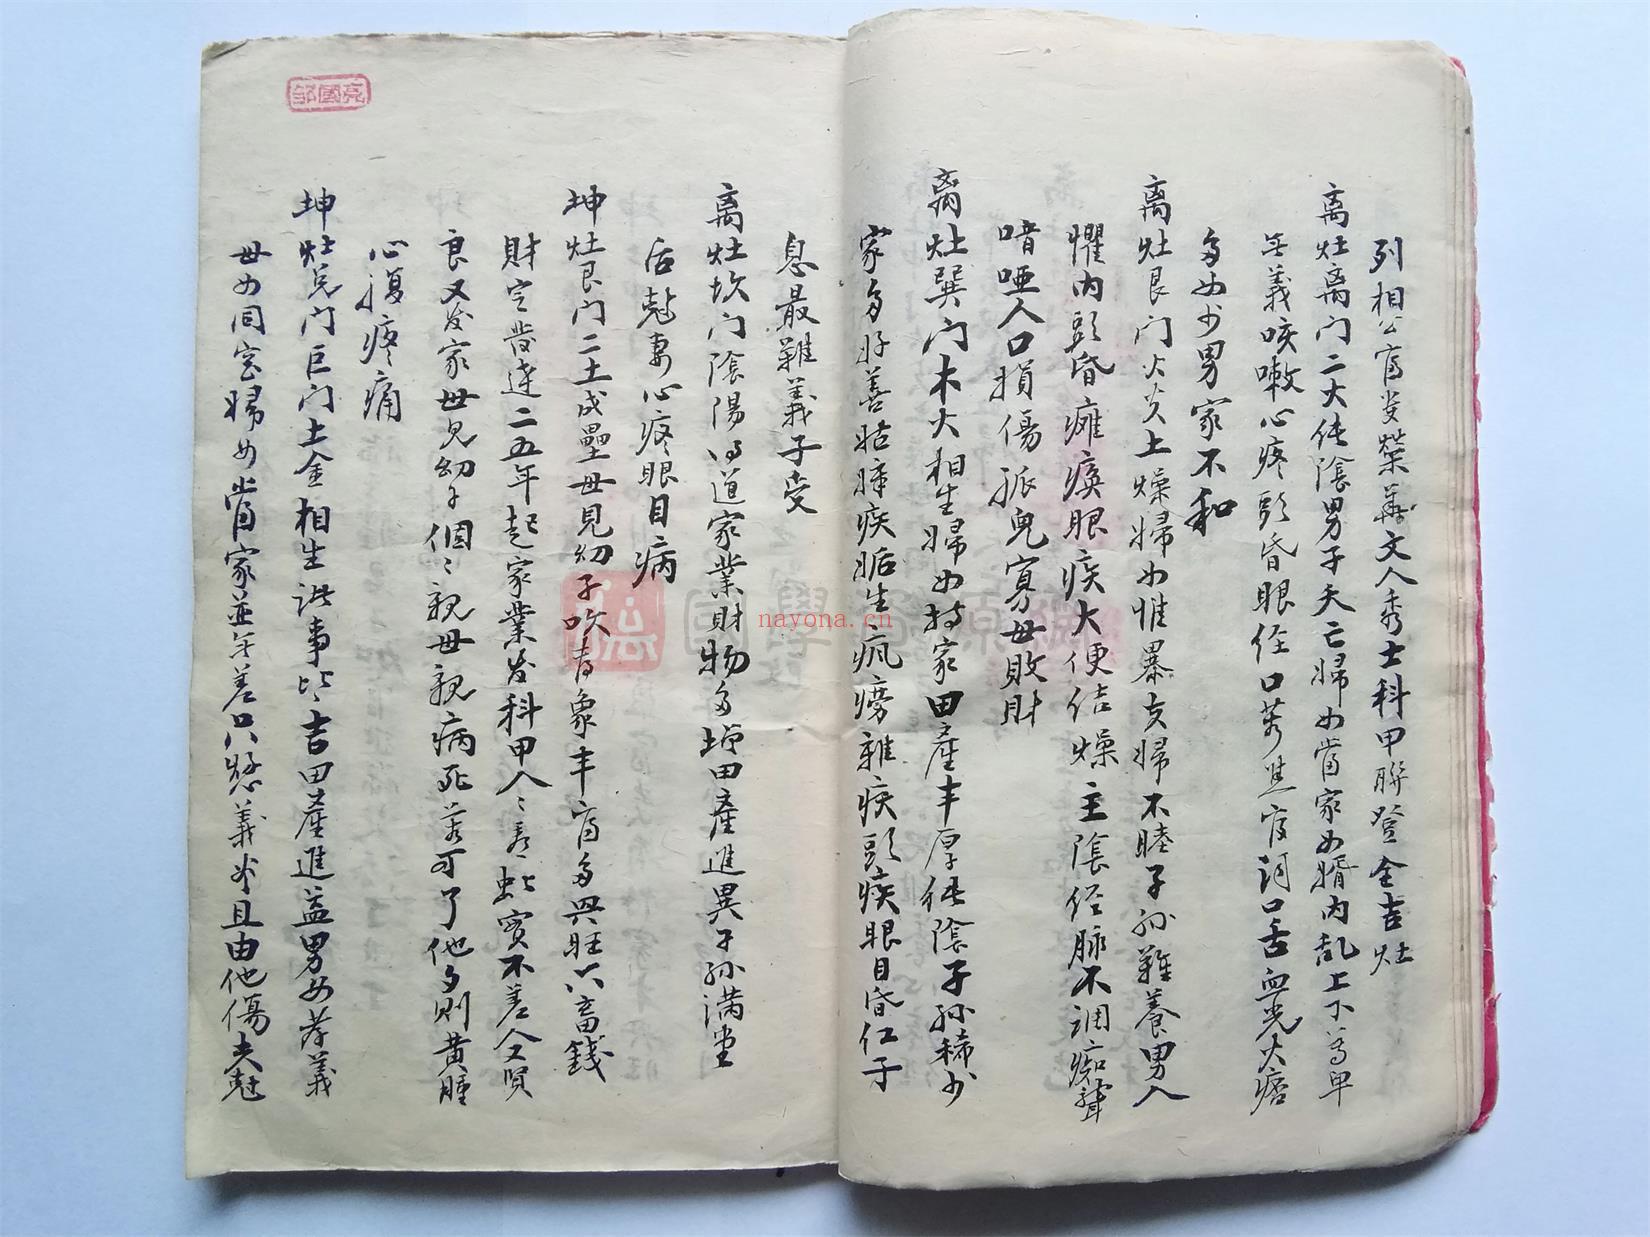 列相公富发榮華文人秀士科甲聯登全吉灶
离灶离门二火纯陰男子夭亡婦女當家女婿内乱上下尊卑
無義咳嗽心疼頭昏眼 口苦 官詞口舌血光火
多女少男家不和
离灶艮门火炎土燥婦女惟暴 婦不睦子孙難養男人
懼内頭昏瘫痪眼疾大便结燥主陰经脉不调痴聋
喑哑人口損傷孤兒寡母敗財
离灶巽门木火相生婦女持家田產丰厚纯陰子孙稀少
家多好善姑 疾 生瘋痨雜疾頭疾眼目昏仁子
息最難義子受
离灶坎门陰陽 道家業財物多增田產進異子孙满堂
后尅妻心疼眼目病
坤灶艮门二土成壘母見幼子 有象丰富多興旺六畜錢
財定發達二五年起家業发科甲人 不差 賢
良又发家母見幼子個個親母親病死 可了他 則黄腫
心腹疼痛
坤灶兑门巨门土金相生諸事皆吉田產進益男女孝義
母女同室婦女當家並無差只 義 且由他傷夫尅
邹國亮
國學 源
nayona.cn